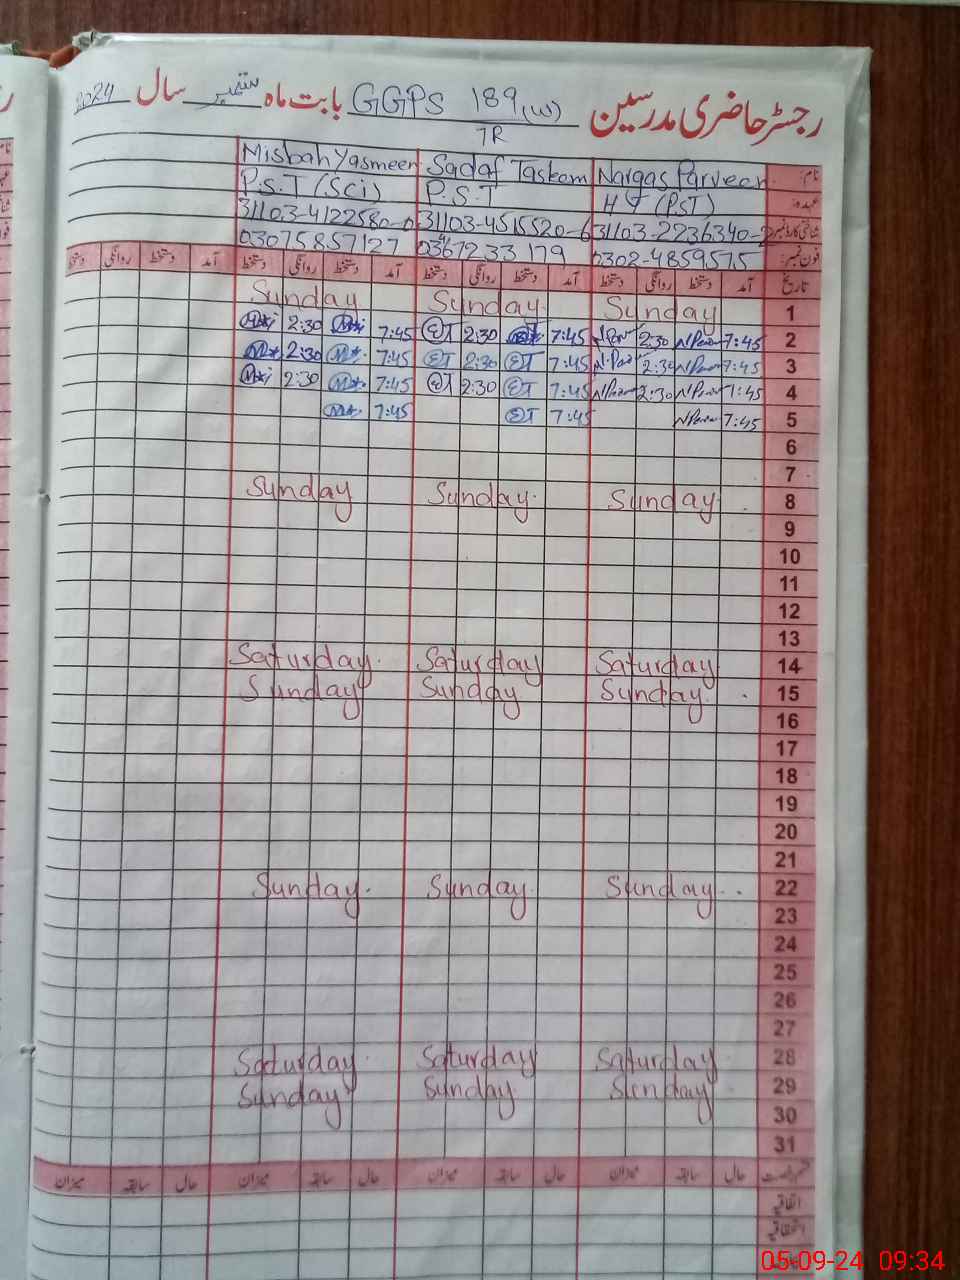 رجسٹر حاضری مدرسین GGPS 189(W)/7R بابت ماہ ستمبر سال 2024
نام: Nargas Parveen Sadaf Taskeem Misbah Yasmeen
عہدہ: H T (PST) P.S.T P.S.T (Sci)
شناختی کارڈ نمبر 31103-2236340-2 31103-4515520-6 31103-4122580-0
فون نمبر: 0302-4859575 03075857127
تاریخ آمد دستخط روانگی دستخط آمد دستخط روانگی دستخط آمد دستخط روانگی دستخط آمد دستخط روانگی دستخط
1 Sunday Sunday Sunday
2 7:45 2:30 7:45 2:30 7:45 2:30
3 7:45 2:30 7:45 2:30 7:45 2:30
4 7:45 2:30 7:45 2:30 7:45 2:30
5 7:45 7:45 7:45
6
7
8 Sunday Sunday Sunday
9
10
11
12
13
14 Saturday Saturday Saturday
15 Sunday Sunday Sunday
16
17
18
19
20
21
22 Sunday Sunday Sunday
23
24
25
26
27
28 Saturday Saturday Saturday
29 Sunday Sunday Sunday
30
31
حال سابقہ میزان حال سابقہ میزان حال سابقہ میزان حال سابقہ میزان
اتفاقیہ
استحقاقیہ
05-09-24 09:34